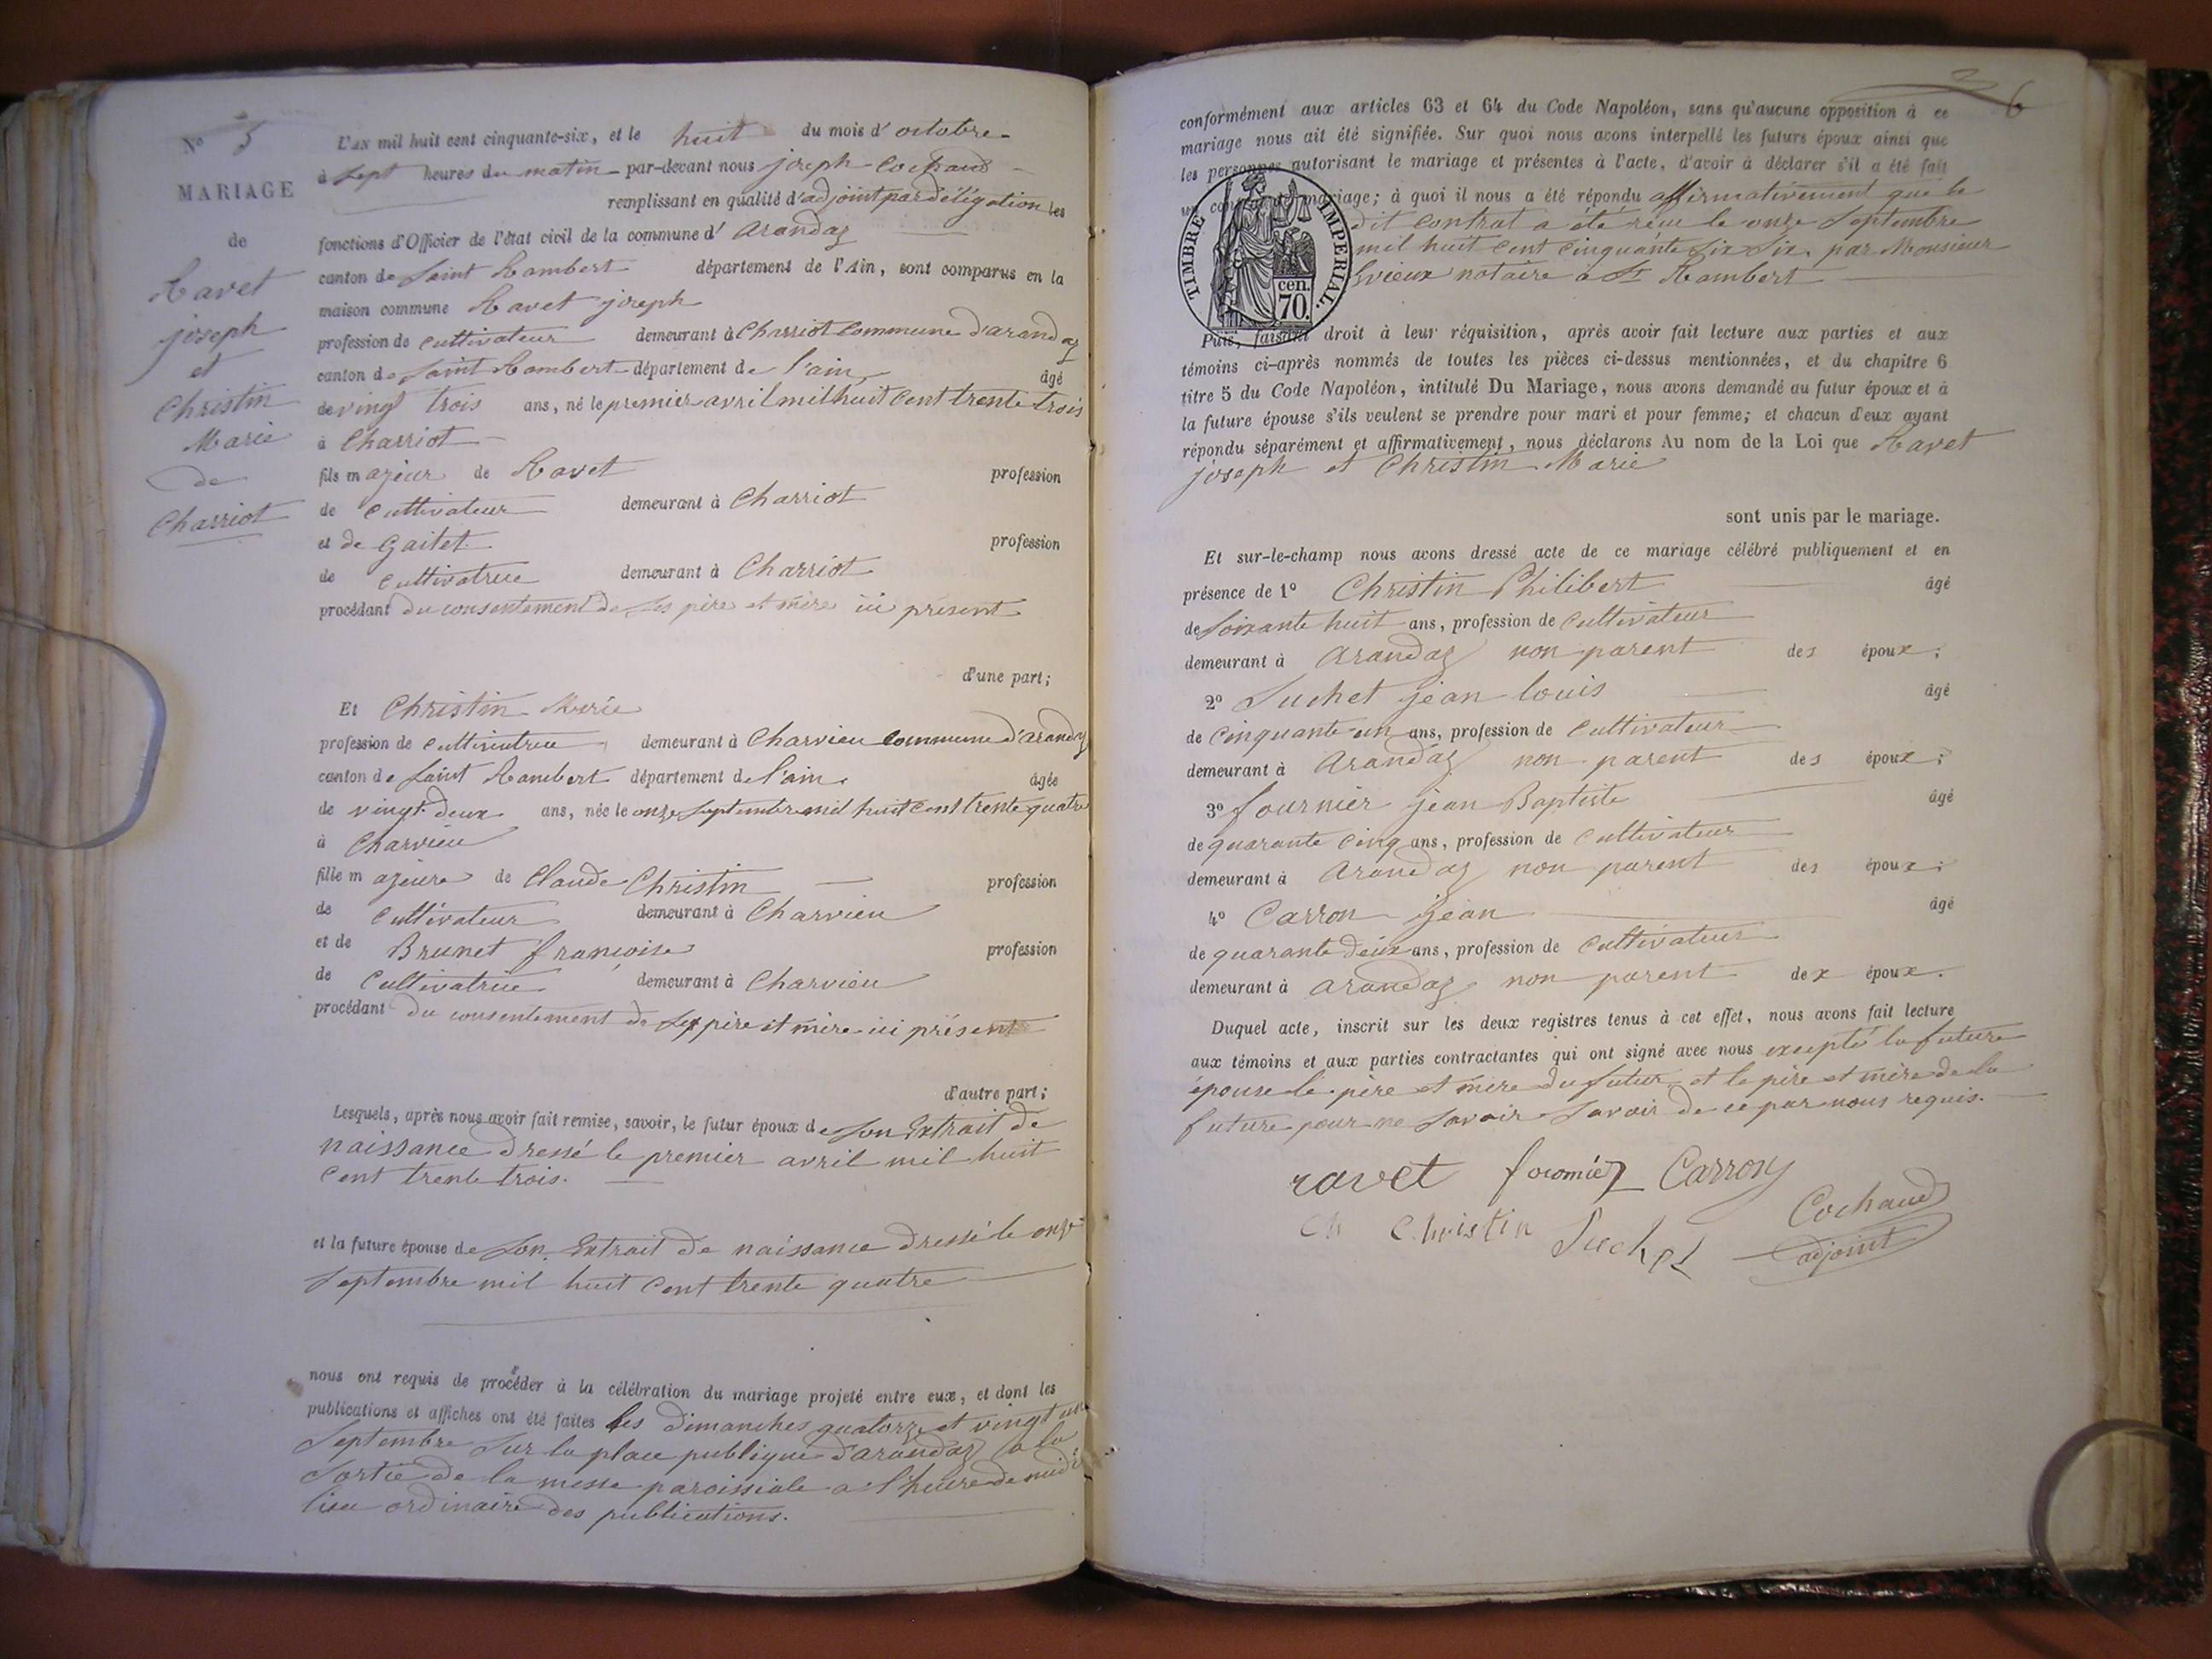 N° 5
MARIAGE
de
Ravet
joseph
et
Christin
Marie
de
Charriot
L'AN mil huit cent cinquante-six, et le huit du mois d'octobre
à sept heures du matin par-devant nous joseph Cochaud
remplissant en qualité d'adjoint par déligation les
fonctions d'Officier de l'état civil de la commune d'arandaz
canton de Saint Rambert département de l'Ain, sont comparus en la
maison commune Ravet joseph
profession de cultivateur demeurant à Charriot commune d'arandaz
canton de Saint Rambert département de l'ain âgé
de vingt trois ans, né le premier avril mil huit cent trente trois
à Charriot
fils majeur de Ravet profession
de cultivateur demeurant à Charriot
et de gaitet profession
de cultivatrice demeurant à Charriot
procédant du consentement de ses père et mère ici présent
d'une part;
Et Christin Marie
profession de cultivatrice demeurant à Charvieu commune d'arandaz
canton de Saint Rambert département de l'ain âgée
de vingt deux ans, née le onze septembre mil huit cent trente quatre
à Charvieu
fille majeure de Claude Christin profession
de cultivateur demeurant à Charvieu
et de Brunet françoise profession
de Cultivatrice demeurant à Charvieu
procédant du consentement de ses père et mère ici présent
d'autre part;
Lesquels, après nous avoir fait remise, savoir, le futur époux de son Extrait de
naissance dressé le premier avril mil huit
cent trente trois.
et la future épouse de son Extrait de naissance dressé le onze
septembre mil huit cent trente quatre
nous ont requis de procéder à la célébration du mariage projeté entre eux, et dont les
publications et affiches ont été faites les dimanches quatorze et vingt un
septembre sur la place publique d'arandaz a la
sortie de la messe paroissiale a l'heure de midi
lieu ordinaire des publications.
6
conformément aux articles 63 et 64 du Code Napoléon, sans qu'aucune opposition à ce
mariage nous ait été signifiée. Sur quoi nous avons interpellé les futurs époux ainsi que
les personnes autorisant le mariage et présentes à l'acte, d'avoir à déclarer s'il a été fait
un contrat de mariage; à quoi il nous a été répondu affirmativement que le
dit contrat a été reçu le onze septembre
mil huit cent cinquante six six par Monsieur
notaire a St Rambert
TIMBRE IMPERIAL.
cen.
70.
Puis, faisant droit à leur réquisition, après avoir fait lecture aux parties et aux
témoins ci-après nommés de toutes les pièces ci-dessus mentionnées, et du chapitre 6
titre 5 du Code Napoléon, intitulé Du Mariage, nous avons demandé au futur époux et à
la future épouse s'ils veulent se prendre pour mari et pour femme; et chacun d'eux ayant
répondu séparément et affirmativement, nous déclarons Au nom de la Loi que Ravet
joseph et Christin Marie
sont unis par le mariage.
Et sur-le-champ nous avons dressé acte de ce mariage célébré publiquement et en
présence de 1° Christin Philibert âgé
de soixante huit ans, profession de cultivateur
demeurant à arandaz non parent des époux;
2° Suchet jean louis âgé
de cinquante un ans, profession de cultivateur
demeurant à arandaz non parent des époux;
3° fournier jean Baptiste âgé
de quarante cinq ans, profession de cultivateur
demeurant à arandaz non parent des époux;
4° Carron jean âgé
de quarante deux ans, profession de cultivateur
demeurant à arandaz non parent dex époux.
Duquel acte, inscrit sur les deux registres tenus à cet effet, nous avons fait lecture
aux témoins et aux parties contractantes qui ont signé avec nous excepté la future
épouse le père et mère du futur et le père et mère de la
future pour ne savoir savoir de ce par nous requis.
ravet fournier Carron
Ch Christin Suchet Cochaud
adjoint